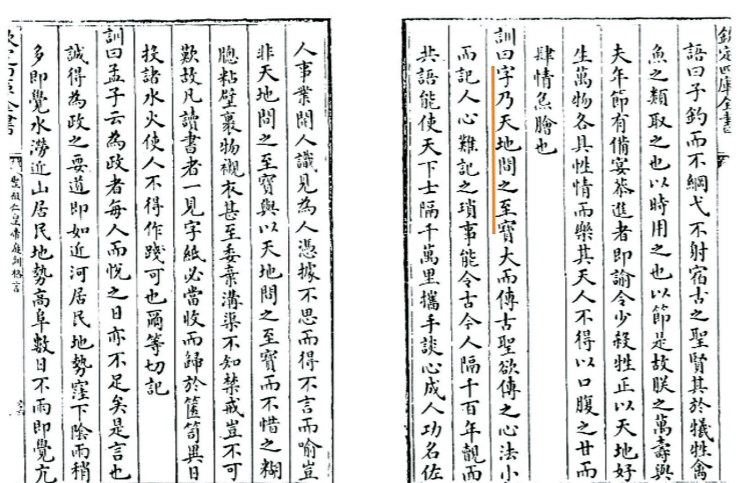 欽定四庫全書
語曰子釣而不綱弋不射宿古之聖賢其於犧牲禽
魚之類取之也以時用之也以節是故朕之萬壽與
夫年節有備宴恭進者即諭令少殺牲正以天地好
生萬物各具性情而樂其天人不得以口腹之甘而
肆情炰膾也
訓曰字乃天地間之至寶大而傳古聖欲傳之心法小
而記人心難記之瑣事能令古今人隔千百年覿面
共語能使天下士隔千萬里攜手談心成人功名佐
人事業開人識見為人憑據不思而得不言而喻豈
非天地間之至寶與以天地間之至寶而不惜之糊
牕粘壁裹物襯衣甚至委棄溝渠不知禁戒豈不可
歎故凡讀書者一見字紙必當收而歸於篋笥異日
投諸水火使人不得作踐可也爾等切記
訓曰孟子云為政者每人而悅之日亦不足矣是言也
誠得為政之要道即如近河居民地勢窪下陰雨稍
多即覺水澇近山居民地勢高阜數日不雨即覺亢
欽定四庫全書
聖祖仁皇帝庭訓格言